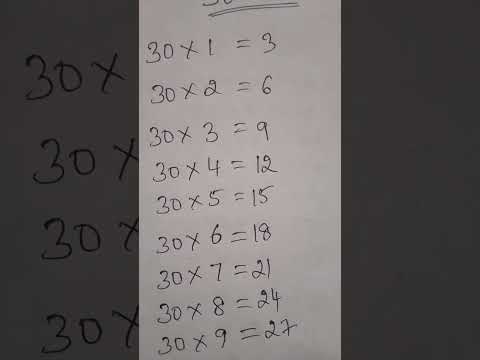 30 × 1 = 3
30 × 2 = 6
30 × 3 = 9
30 × 4 = 12
30 × 5 = 15
30 × 6 = 18
30 × 7 = 21
30 × 8 = 24
30 × 9 = 27